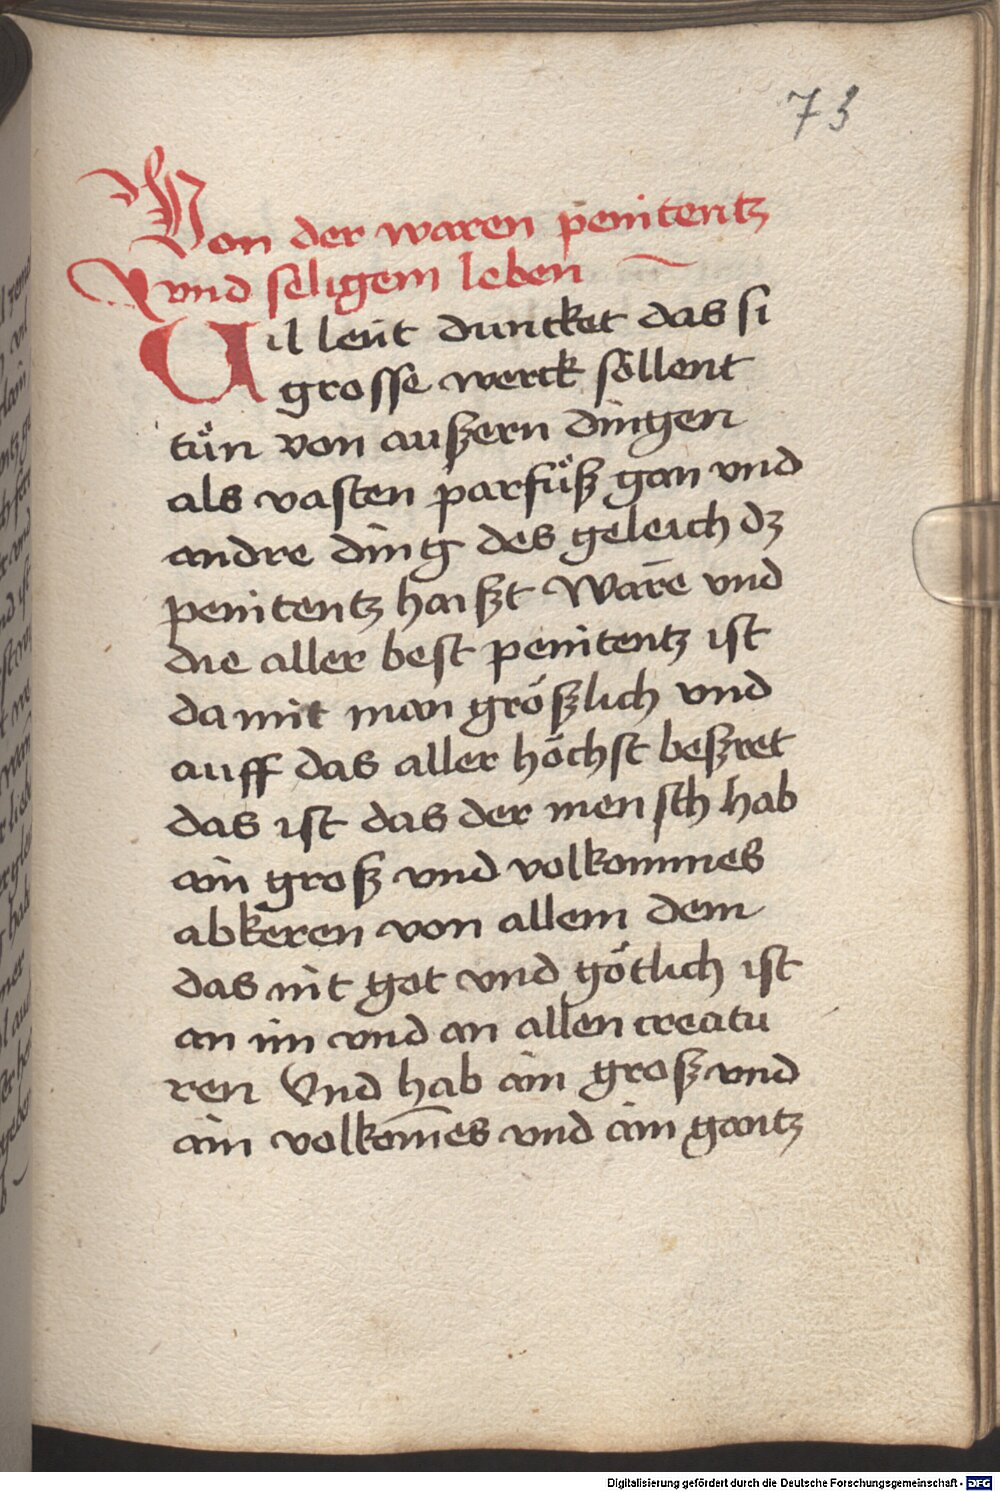 73
Von der waren penitentz
vnd seligem leben
Uil leüt duncket das si
grosse werck söllent
tůn von auszern dingen
als vasten parfůsz gan vnd
andre ding des geleich dz
penitentz haiszt Warē vnd
die aller best penitentz ist
damit man gröszlich vnd
auff das aller höchst beszret
das ist das der mensch hab
ain grosz vnd volkommes
abkeren von allem dem
das nit got vnd götlich ist
an im vnd an allen creatu
ren Vnd hab ain grosz vnd
ain volkom̄es vnd ain gantz
Digitalisierung gefördert durch die Deutsche Forschungsgemeinschaft - DFG